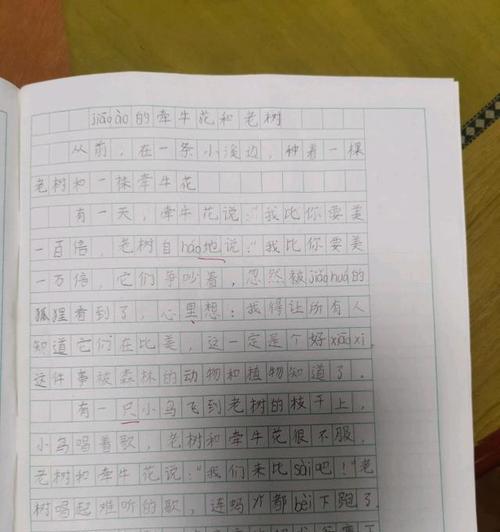 jiāoào的牵牛花和老树
从前，在一条小溪边，种着一棵
老树和一株牵牛花
有一天，牵牛花说："我比你要美
一百倍，老树自háo地说："我比你要美
一万倍，它们争吵着，忽然被jiǎohuá的
狐狸看到了，心里想：我得让所有人
知道它们在比美，这一定是个好xiāoxi.
这件事被森林的动物和植物知道了.
有一只小鸟飞到老树的枝干上，
小鸟唱着歌，老树和牵牛花很不服，
老树和牵牛花说："我们来比sài吧！"老
树唱起难听的歌，连蚂 都 下跑了